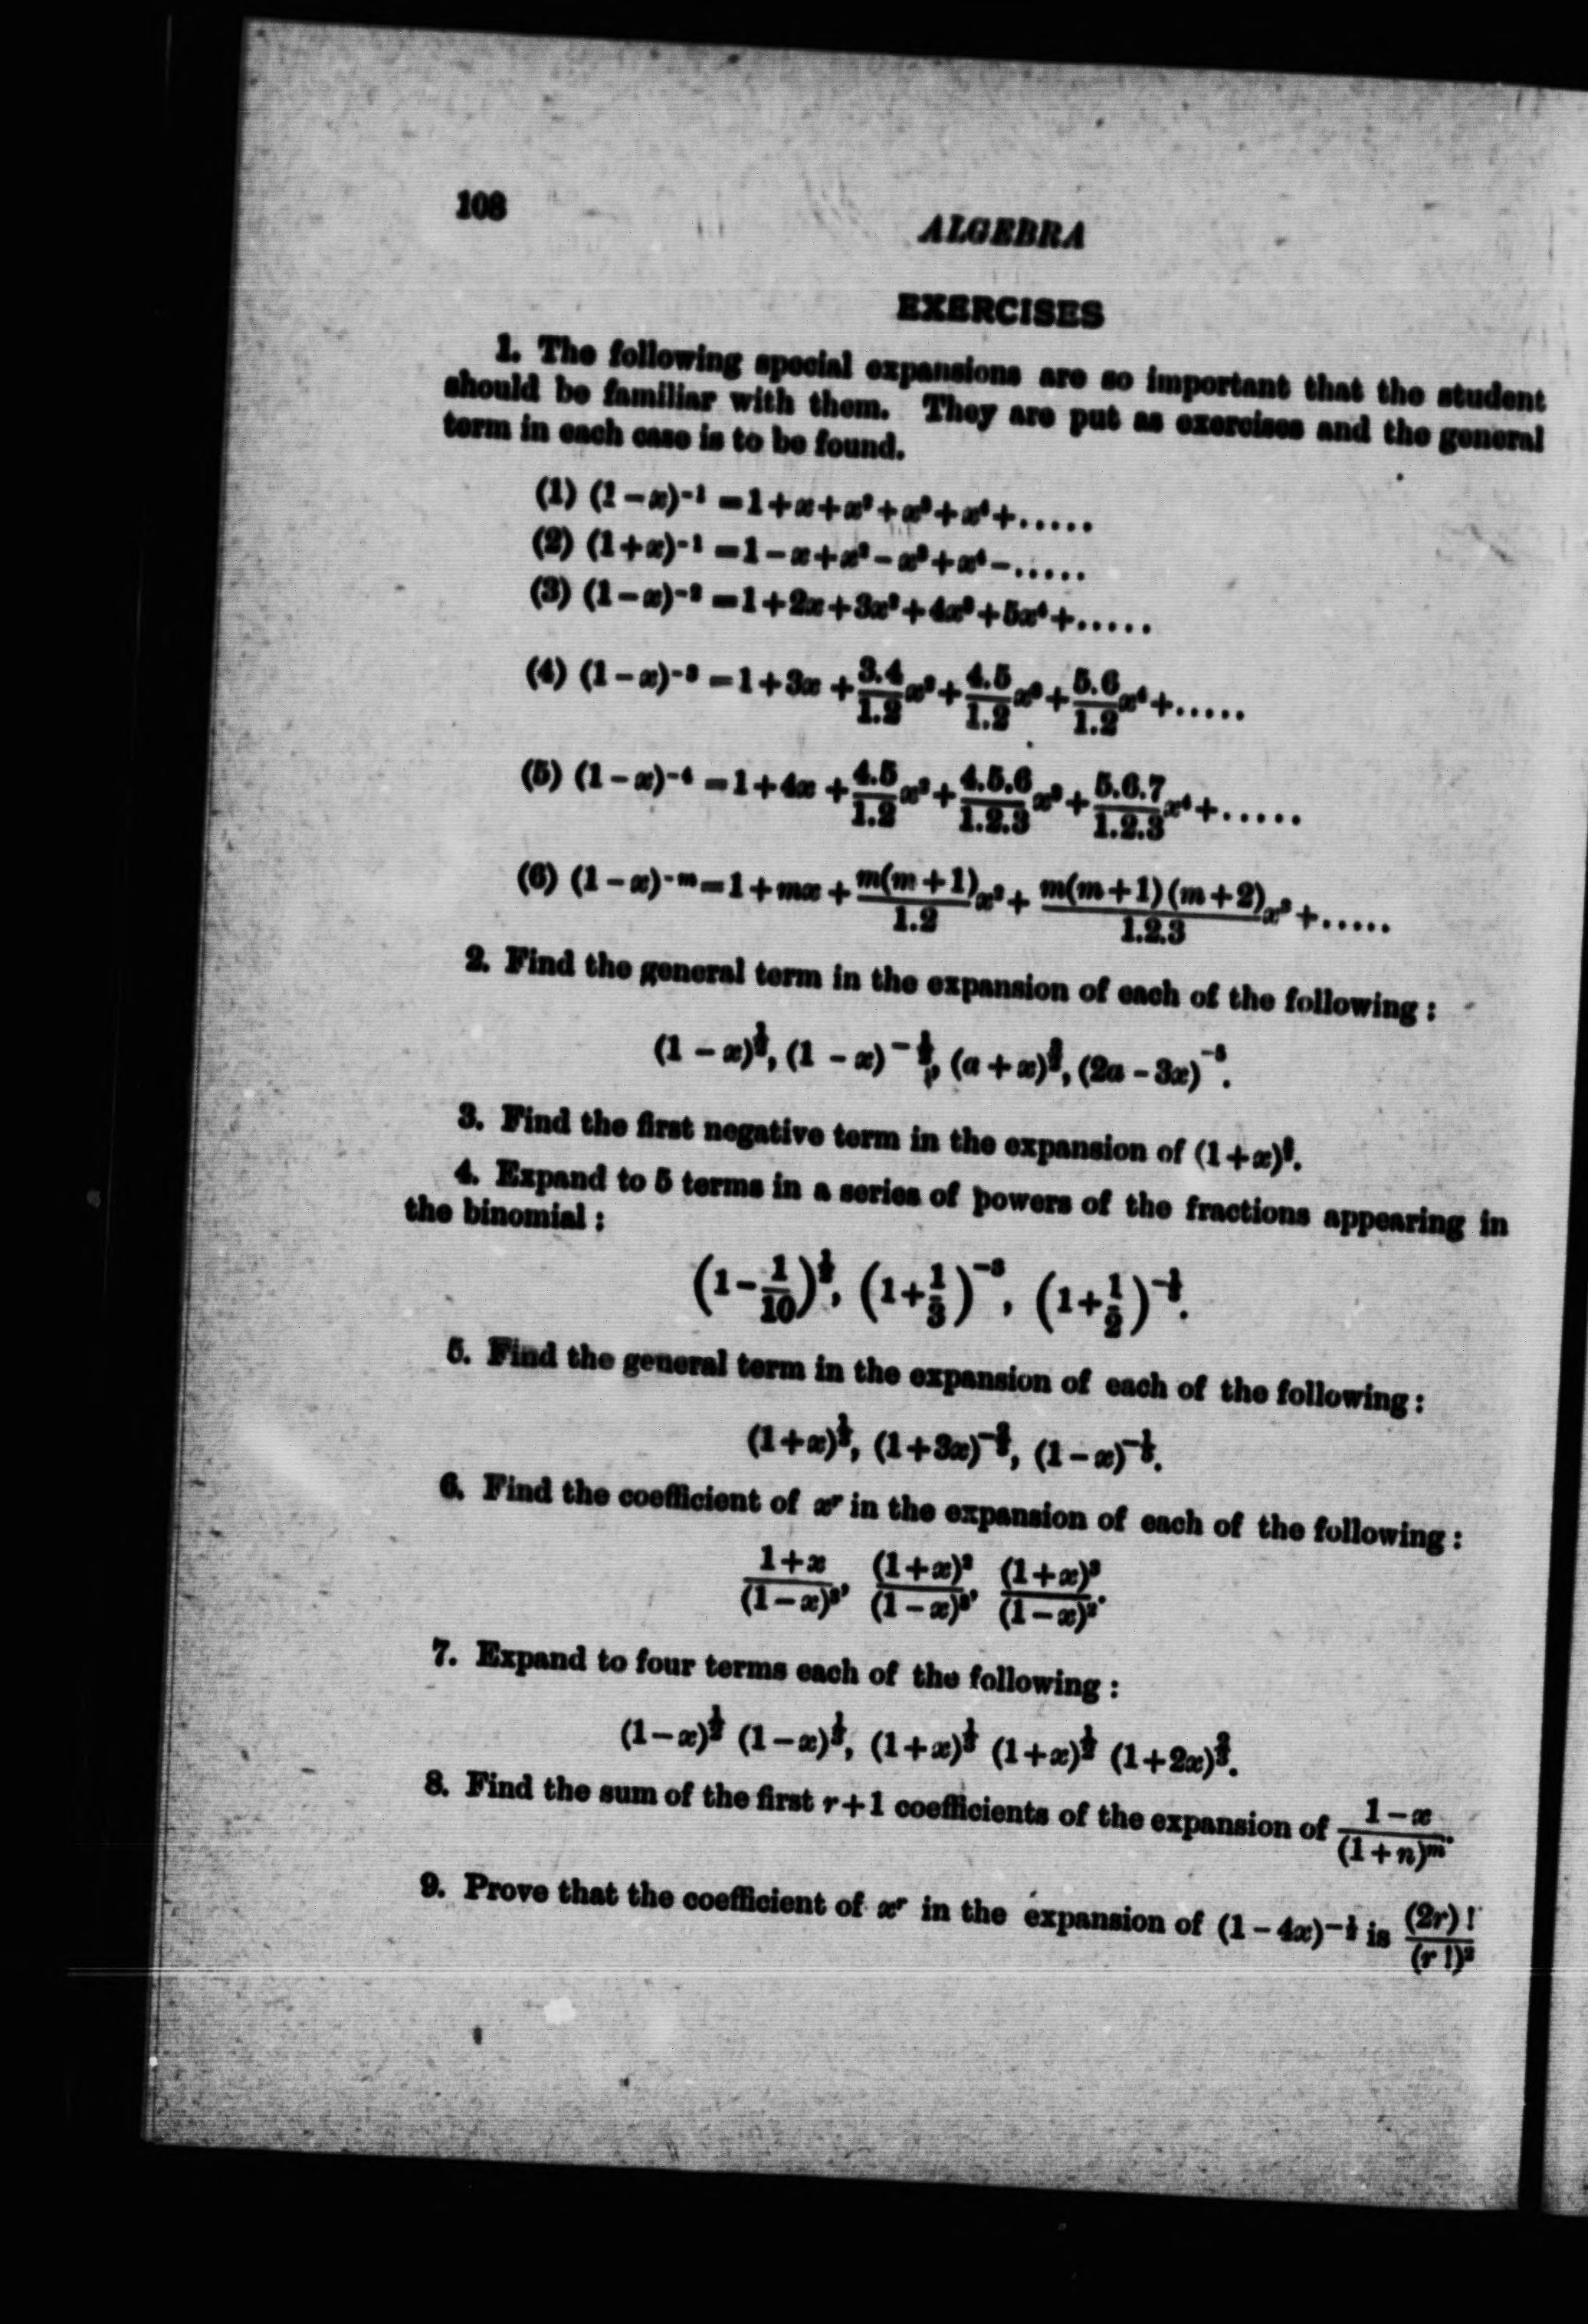 108
ALGEBRA
EXERCISES
1. The following special expansions are so important that the student
should be familiar with them. They are put as exercises and the general
term in each case is to be found.
(1) (1−x)⁻¹ =1+x+x²+x³+x⁴+.....
(2) (1+x)⁻¹ =1−x+x²−x³+x⁴−.....
(3) (1−x)⁻² =1+2x+3x²+4x³+5x⁴+.....
(4) (1−x)⁻³ =1+3x+3.4/1.2 x²+4.5/1.2 x³+5.6/1.2 x⁴+.....
(5) (1−x)⁻⁴ =1+4x+4.5/1.2 x²+4.5.6/1.2.3 x³+5.6.7/1.2.3 x⁴+.....
(6) (1−x)⁻ᵐ=1+mx+m(m+1)/1.2 x²+m(m+1)(m+2)/1.2.3 x³+.....
2. Find the general term in the expansion of each of the following :
(1−x), (1−x), (a+x), (2a−3x).
3. Find the first negative term in the expansion of (1+x).
4. Expand to 5 terms in a series of powers of the fractions appearing in
the binomial :
(1−1/10), (1+1/3)⁻³, (1+1/2).
5. Find the general term in the expansion of each of the following :
(1+x), (1+3x), (1−x).
6. Find the coefficient of xʳ in the expansion of each of the following :
1+x/(1−x), (1+x)/(1−x), (1+x)/(1−x).
7. Expand to four terms each of the following :
(1−x)^½ (1−x)^⅓, (1+x)^⅓ (1+x)^½ (1+2x)^⅔.
8. Find the sum of the first r+1 coefficients of the expansion of 1−x/(1+n)ᵐ.
9. Prove that the coefficient of xʳ in the expansion of (1−4x)^−½ is (2r)!/(r!)²